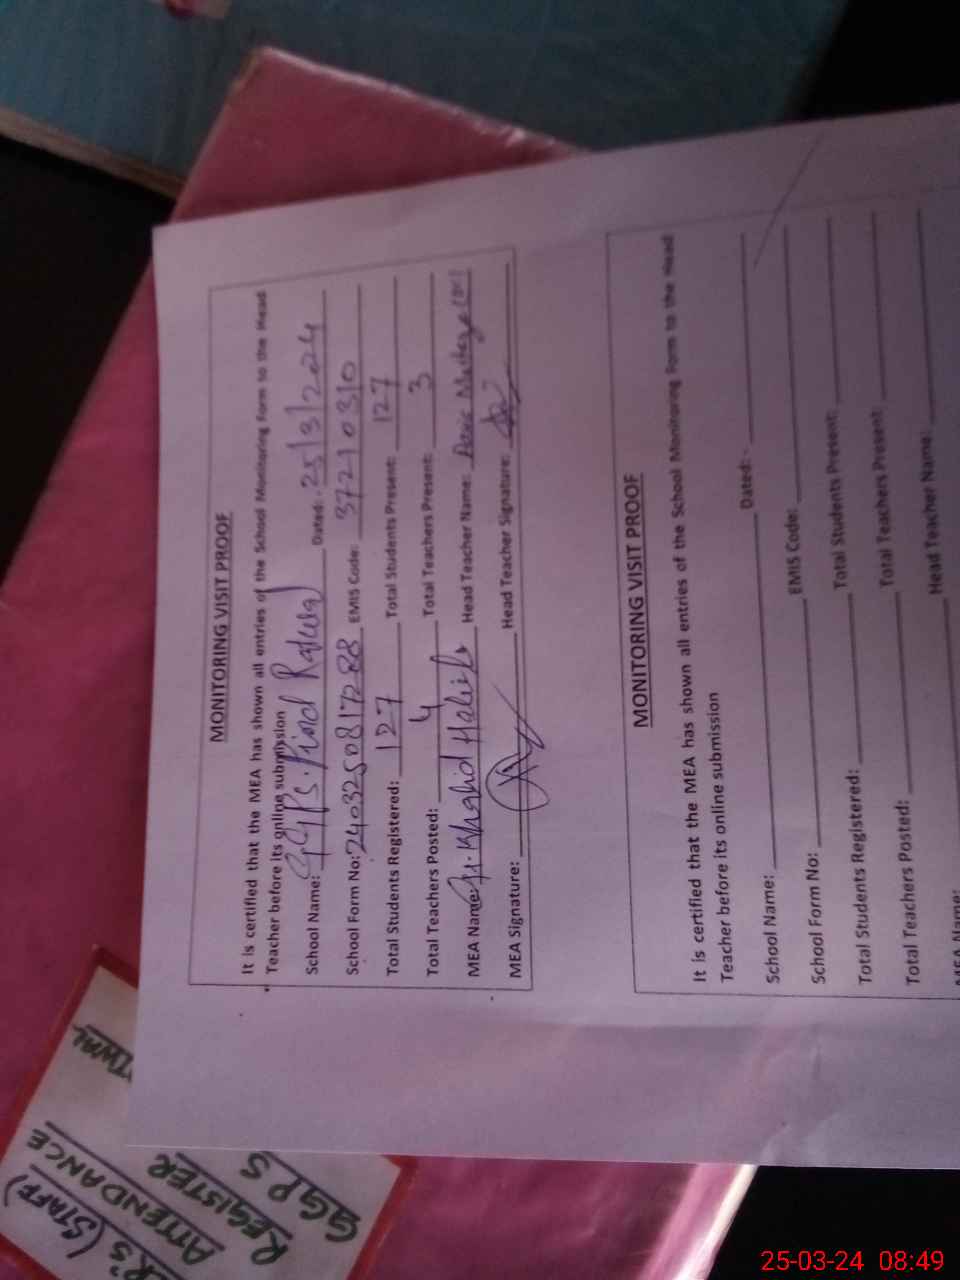 MONITORING VISIT PROOF
It is certified that the MEA has shown all entries of the School Monitoring Form to the Head
Teacher before its online submission
School Name: GGPS. Pind Dated:- 25/3/2024
School Form No: 240325081788 EMIS Code: 37210310
Total Students Registered: 127 Total Students Present: 127
Total Teachers Posted: 4 Total Teachers Present: 3
MEA Name: M. Khalid Head Teacher Name:
MEA Signature: Head Teacher Signature:
MONITORING VISIT PROOF
It is certified that the MEA has shown all entries of the School Monitoring Form to the Head
Teacher before its online submission
School Name: Dated:-
School Form No: EMIS Code:
Total Students Registered: Total Students Present:
Total Teachers Posted: Total Teachers Present:
MEA Name: Head Teacher Name:
ER'S (STAFF)
ATTENDANCE
REGISTER
GGPS
25-03-24 08:49